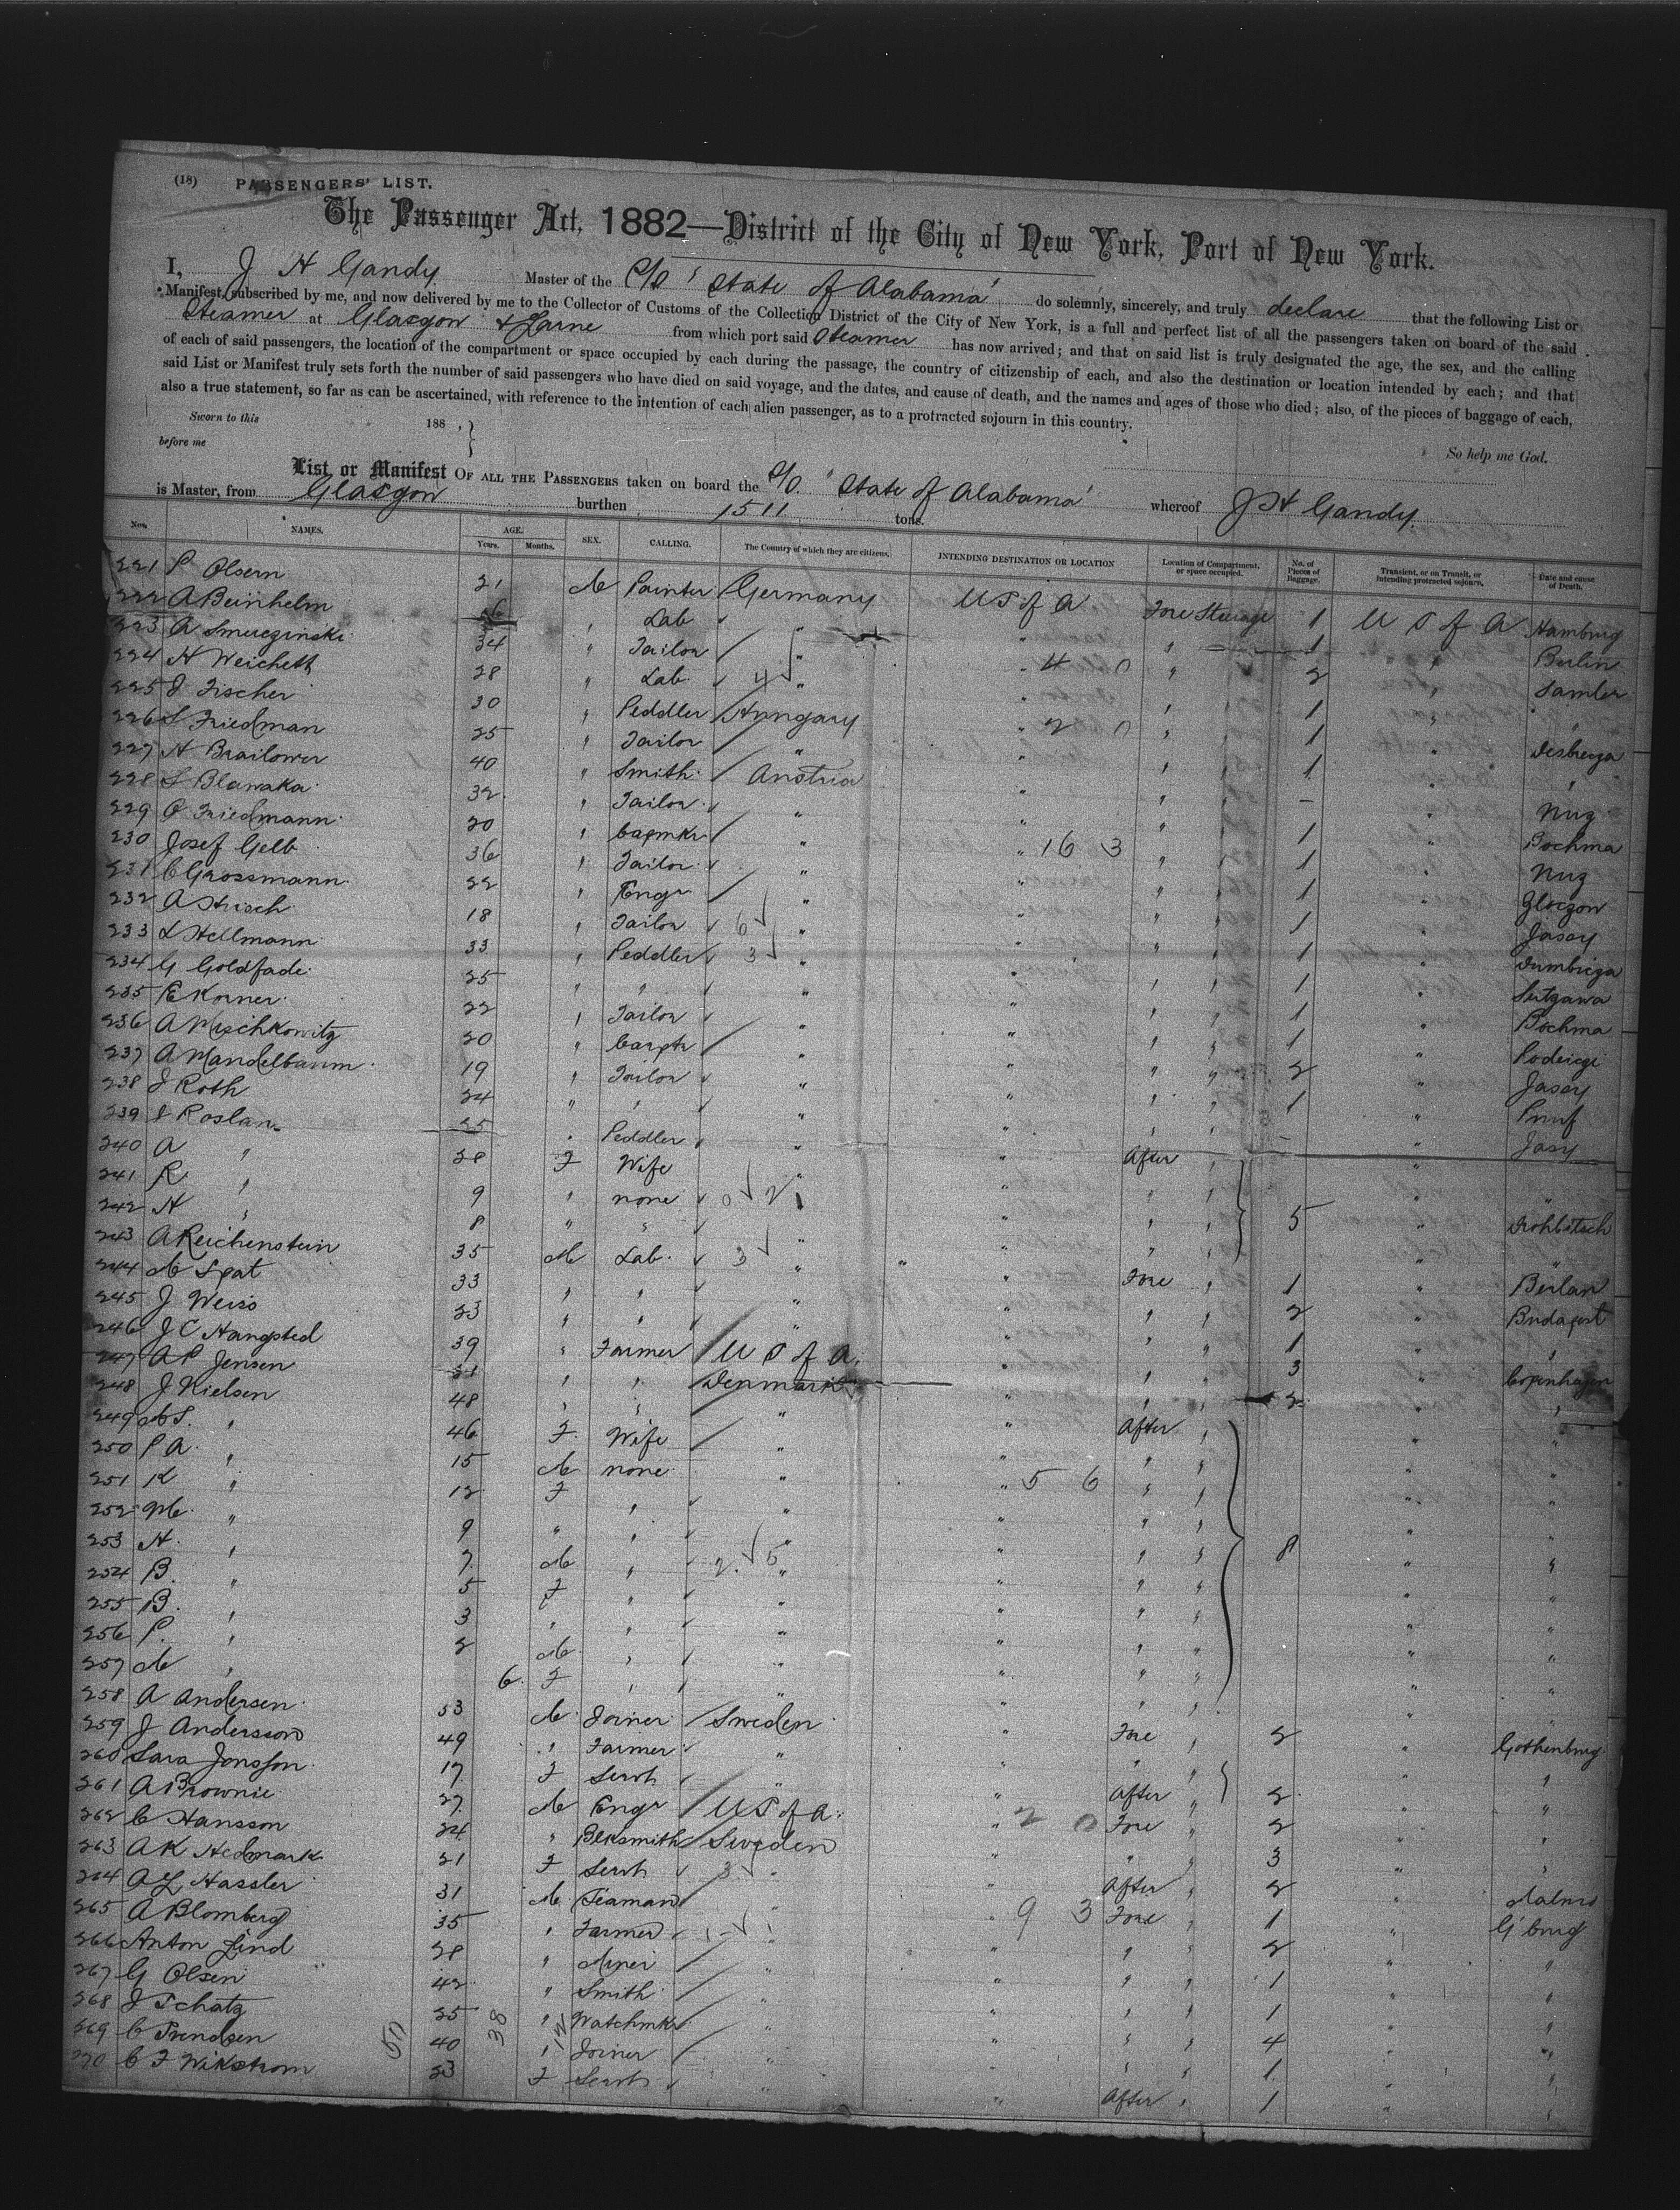 (18) PASSENGERS' LIST.
The Passenger Act, 1882—District of the City of New York, Port of New York.
I, J H Gandy Master of the S/S "State of Alabama" do solemnly, sincerely, and truly declare that the following List or
Manifest, subscribed by me, and now delivered by me to the Collector of Customs of the Collection District of the City of New York, is a full and perfect list of all the passengers taken on board of the said
Steamer at Glasgow & Larne from which port said Steamer has now arrived; and that on said list is truly designated the age, the sex, and the calling
of each of said passengers, the location of the compartment or space occupied by each during the passage, the country of citizenship of each, and also the destination or location intended by each; and that
said List or Manifest truly sets forth the number of said passengers who have died on said voyage, and the dates, and cause of death, and the names and ages of those who died; also, of the pieces of baggage of each,
also a true statement, so far as can be ascertained, with reference to the intention of each alien passenger, as to a protracted sojourn in this country.
Sworn to this 188 , }
before me
So help me God.
List or Manifest OF ALL THE PASSENGERS taken on board the S/S. "State of Alabama" whereof J H Gandy.
is Master, from Glasgow burthen 1511 tons.
Nos. NAMES. AGE. Years. Months. SEX. CALLING. The Country of which they are citizens. INTENDING DESTINATION OR LOCATION Location of Compartment, or space occupied. No. of Pieces of Baggage. Transient, or on Transit, or intending protracted sojourn. Date and cause of Death.
221 P Olsern 21 M Painter Germany U S of A Fore Steerage 1 U S of A Hamburg
222 A Beinhelm " Lab " " " 1 " Berlin
223 A Smuczinski 34 " Tailor " " " 2 " Samter
224 H Weichett 28 " Lab 4 " " 4 0 " 1 " "
225 J Fischer 30 " Peddler Hungary " " 1 "
226 S Friedman 25 " Tailor " " 2 0 " 1 "
227 H Brailower 40 " Smith Austria " " – "
228 S Blawaka 32 " Tailor " " " 1 " Bochma
229 O Friedmann 20 " Capmkr " " " 1 "
230 Josef Gelb 36 " Tailor " " 16 3 " 1 "
231 C Grossmann 22 " Engr " " " 1 "
232 A Hrisch 18 " Tailor 6 " " " 1 "
233 L Hellmann 33 " Peddler 3 " " " 1 "
234 G Goldfade 25 " " " " " 1 "
235 E Korner 22 " Tailor " " " 1 " Bochma
236 A Mischkowitz 20 " Carptr " " " 2 "
237 A Mandelbaum 19 " Tailor " " " 1 "
238 J Roth 24 " " " " " "
239 S Roslan 25 " Peddler " " " "
240 A " 28 F Wife " " After " "
241 R " 9 " none 0 2 " " " "
242 H " 8 " " " " " 5 "
243 A Reichenstein 35 M Lab 3 " " Fore " 1 "
244 M Spat 33 " " " " " 2 " Budapest
245 J Weiss 23 " " " " " 1 " "
246 J C Hangsted 39 " Farmer U S of A " " 3 " Copenhagen
247 A P Jensen 31 " " Denmark " " 2 " "
248 J Nielsen 48 " " " " " " "
249 M S. " 46 F. Wife " " After " " "
250 P A. " 15 M none " " " " "
251 K " 12 F " " " 5 6 " " "
252 M. " 9 " " " " " " "
253 H. " 7 M " 2 5 " " " 8 " "
254 B. " 5 F " " " " " "
255 B. " 3 " " " " " " "
256 P. " 2 M " " " " " "
257 M " 6. F " " " " " "
258 A Andersen 53 M Joiner Sweden " Fore " 2 " Gothenburg
259 J Andersson 49 " Farmer " " " " "
260 Sara Jonsson 17 F Servt " " After 2 " "
261 A Brownie 27 M Engr U S of A. " 2 0 Fore 2 " "
262 C Hansson 24 " Blksmith Sweden " " 3 " "
263 A K Hedmark 21 F Servt 3 " " After 2 " Malmo
264 A L Hassler 31 M Seaman " " 9 3 Fore 1 " G'burg
265 A Blomberg 35 " Farmer " " " 2 " "
266 Anton Lind 28 " Miner " " " 1 " "
267 G Olsen 42 " Smith " " " 1 " "
268 J Schatz 25 " Watchmkr " " " 4 " "
269 C Svendsen 40 " Joiner " " " 1 " "
270 C F Wikstrom 23 F Servt " " After " 1 " "
50 38 12